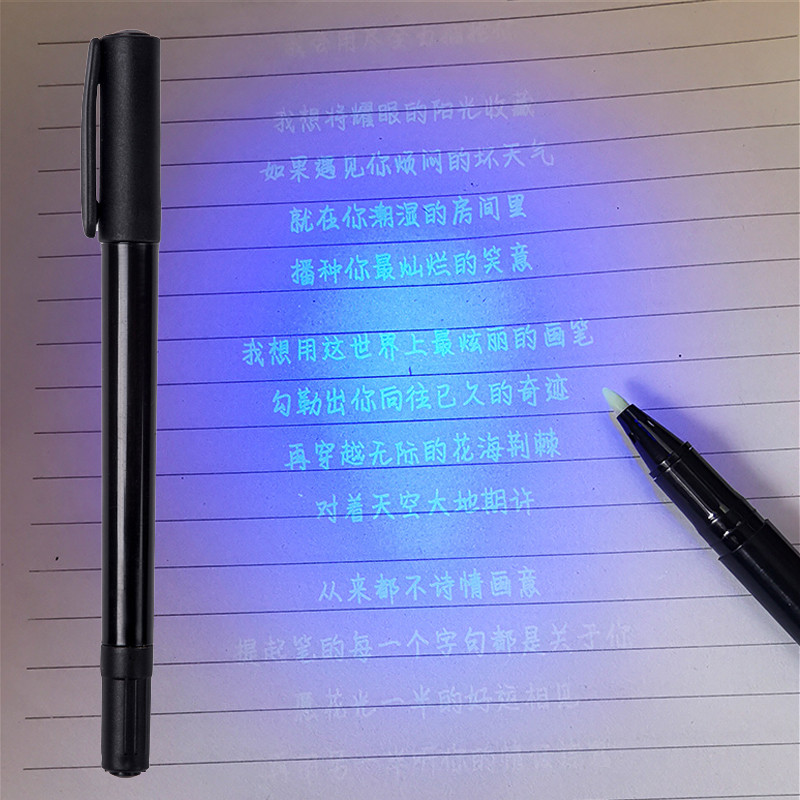 我会用尽全力拥抱你
我想将耀眼的阳光收藏
如果遇见你烦闷的坏天气
就在你潮湿的房间里
播种你最灿烂的笑意
我想用这世界上最炫丽的画笔
勾勒出你向往已久的奇迹
再穿越无际的花海荆棘
对着天空大地期许
从来都不诗情画意
提起笔的每一个字句都是关于你
愿花光一半的好运相见